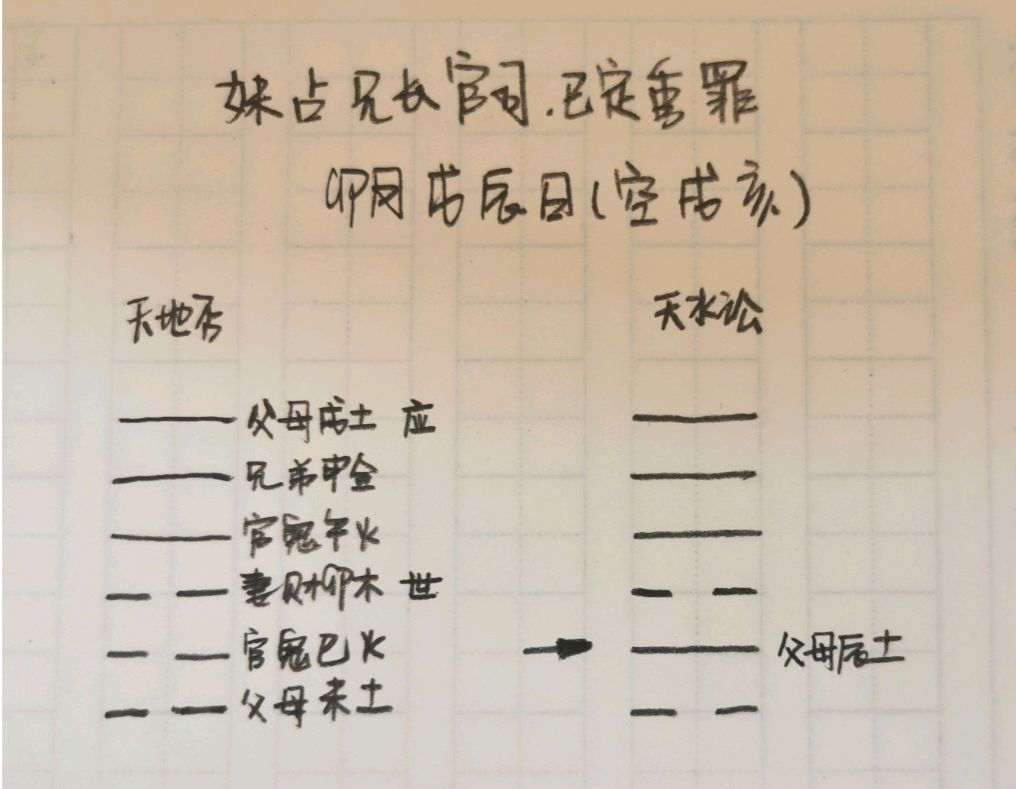 妹占兄长官司.已定重罪
卯月戊辰日(空戌亥)
天地否
天水讼
父母戌土 应
兄弟申金
官鬼午火
妻财卯木 世
官鬼巳火
父母辰土
父母未土